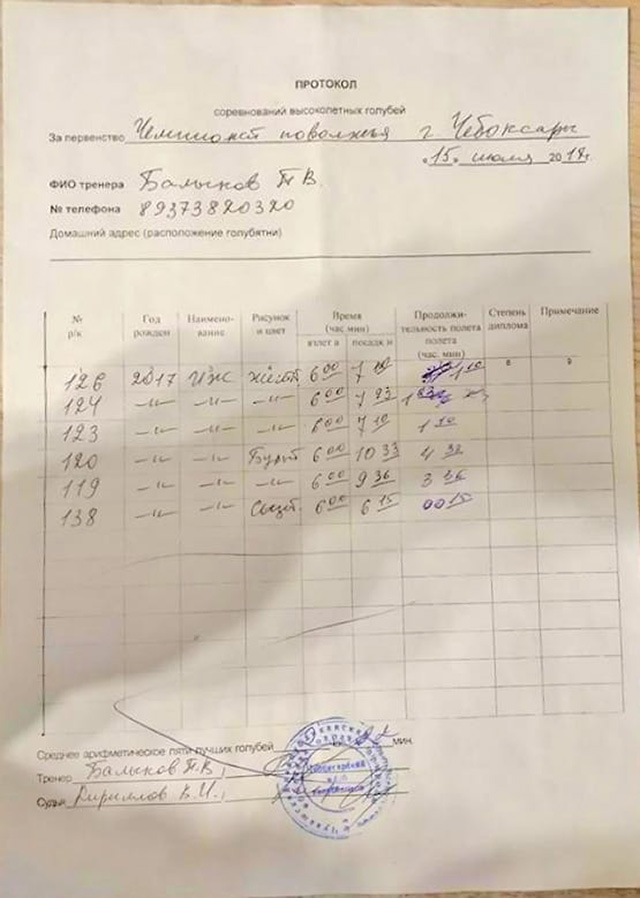 ПРОТОКОЛ
соревнований высоколетных голубей
За первенство Чемпионат поволжья г. Чебоксары
"15" июля 2018 г
ФИО тренера Балыков П В.
№ телефона 89373820320
Домашний адрес (расположение голубятни)
№ р/к Год рожден Наимено-вание Рисунок и цвет Время (час мин) взлет а посадк и Продолжи-тельность полета полета (час. мин) Степень диплома Примечание
8 9
126 2017 ИЖ 6 00 7 10 1 10
124 -"- -"- -"- 6 00 7 23
123 -"- -"- -"- 6 00 7 10 1 10
120 -"- -"- 6 00 10 33 4 33
119 -"- -"- -"- 6 00 9 36 3 36
138 -"- -"- 6 00 6 15 00 15
Среднее арифметическое пяти лучших голубей мин.
Тренер Балыков П В,
Судья Кириллов В.И.,